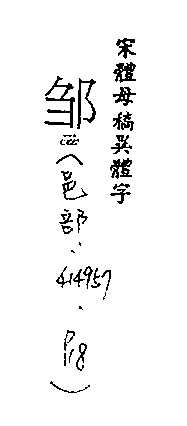 宋體母稿異體字
邹(邑部.414957.P18)